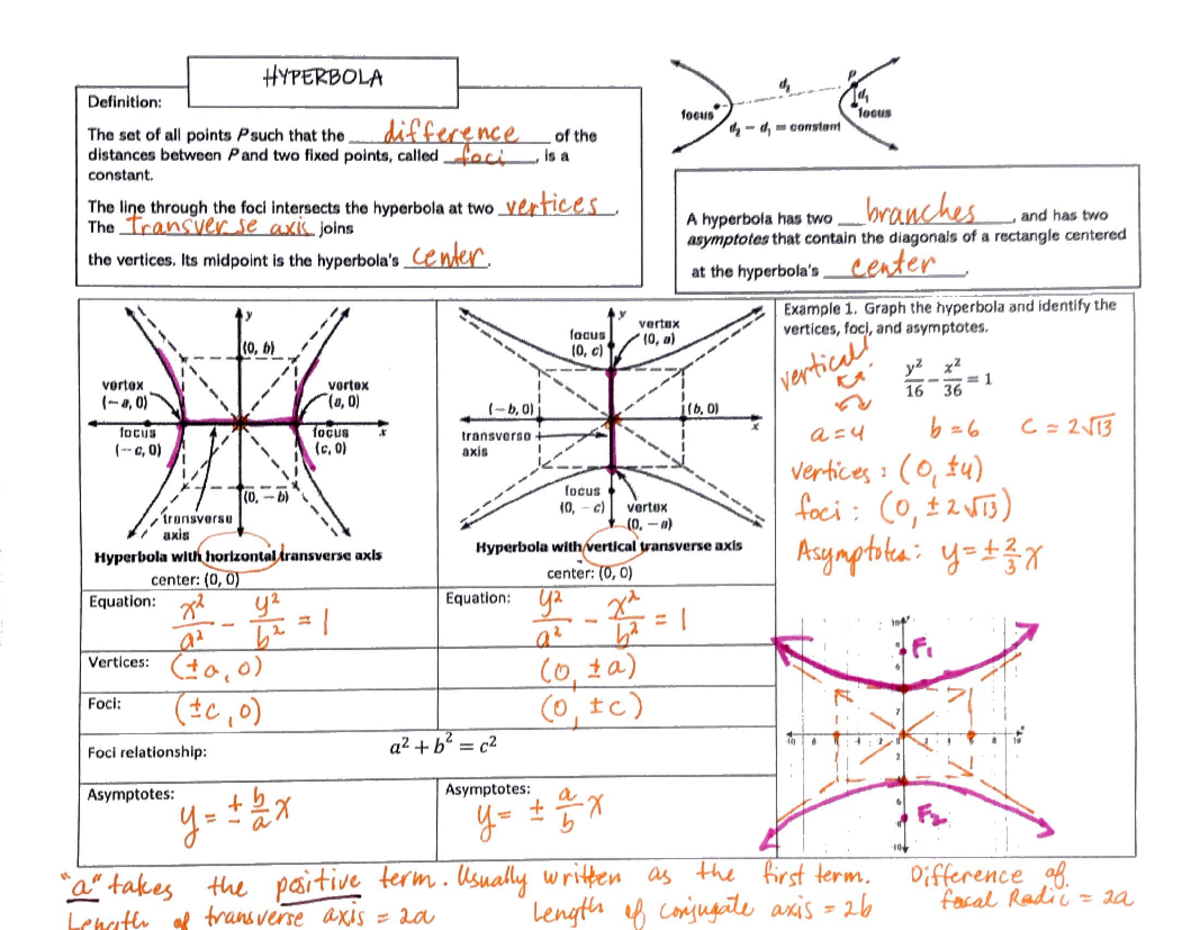 HYPERBOLA
Definition:
The set of all points P such that the difference of the
distances between P and two fixed points, called foci, is a
constant.
The line through the foci intersects the hyperbola at two vertices.
The transverse axis joins
the vertices. Its midpoint is the hyperbola's center.
focus
d₂
P
d₁
focus
d₂ - d₁ = constant
A hyperbola has two branches, and has two
asymptotes that contain the diagonals of a rectangle centered
at the hyperbola's center.
y
(0, b)
vertex
(-a, 0)
vertex
(a, 0)
focus
(-c, 0)
focus
(c, 0)
x
(0, -b)
transverse
axis
Hyperbola with horizontal transverse axis
center: (0, 0)
y
focus
(0, c)
vertex
(0, a)
(-b, 0)
(b, 0)
x
transverse
axis
focus
(0, -c)
vertex
(0, -a)
Hyperbola with vertical transverse axis
center: (0, 0)
Example 1. Graph the hyperbola and identify the
vertices, foci, and asymptotes.
vertical!
y²/16 - x²/36 = 1
a=4 b=6 c = 2√13
vertices: (0, ±4)
foci: (0, ±2√13)
Asymptotes: y=±2/3 x
F₁
F₂
Equation: x²/a² - y²/b² = 1
Equation: y²/a² - x²/b² = 1
Vertices: (±a, 0)
(0, ±a)
Foci: (±c, 0)
(0, ±c)
Foci relationship: a² + b² = c²
Asymptotes: y = ± b/a x
Asymptotes: y = ± a/b x
"a" takes the positive term. Usually written as the first term.
Length of transverse axis = 2a
Length of conjugate axis = 2b
Difference of
focal Radii = 2a